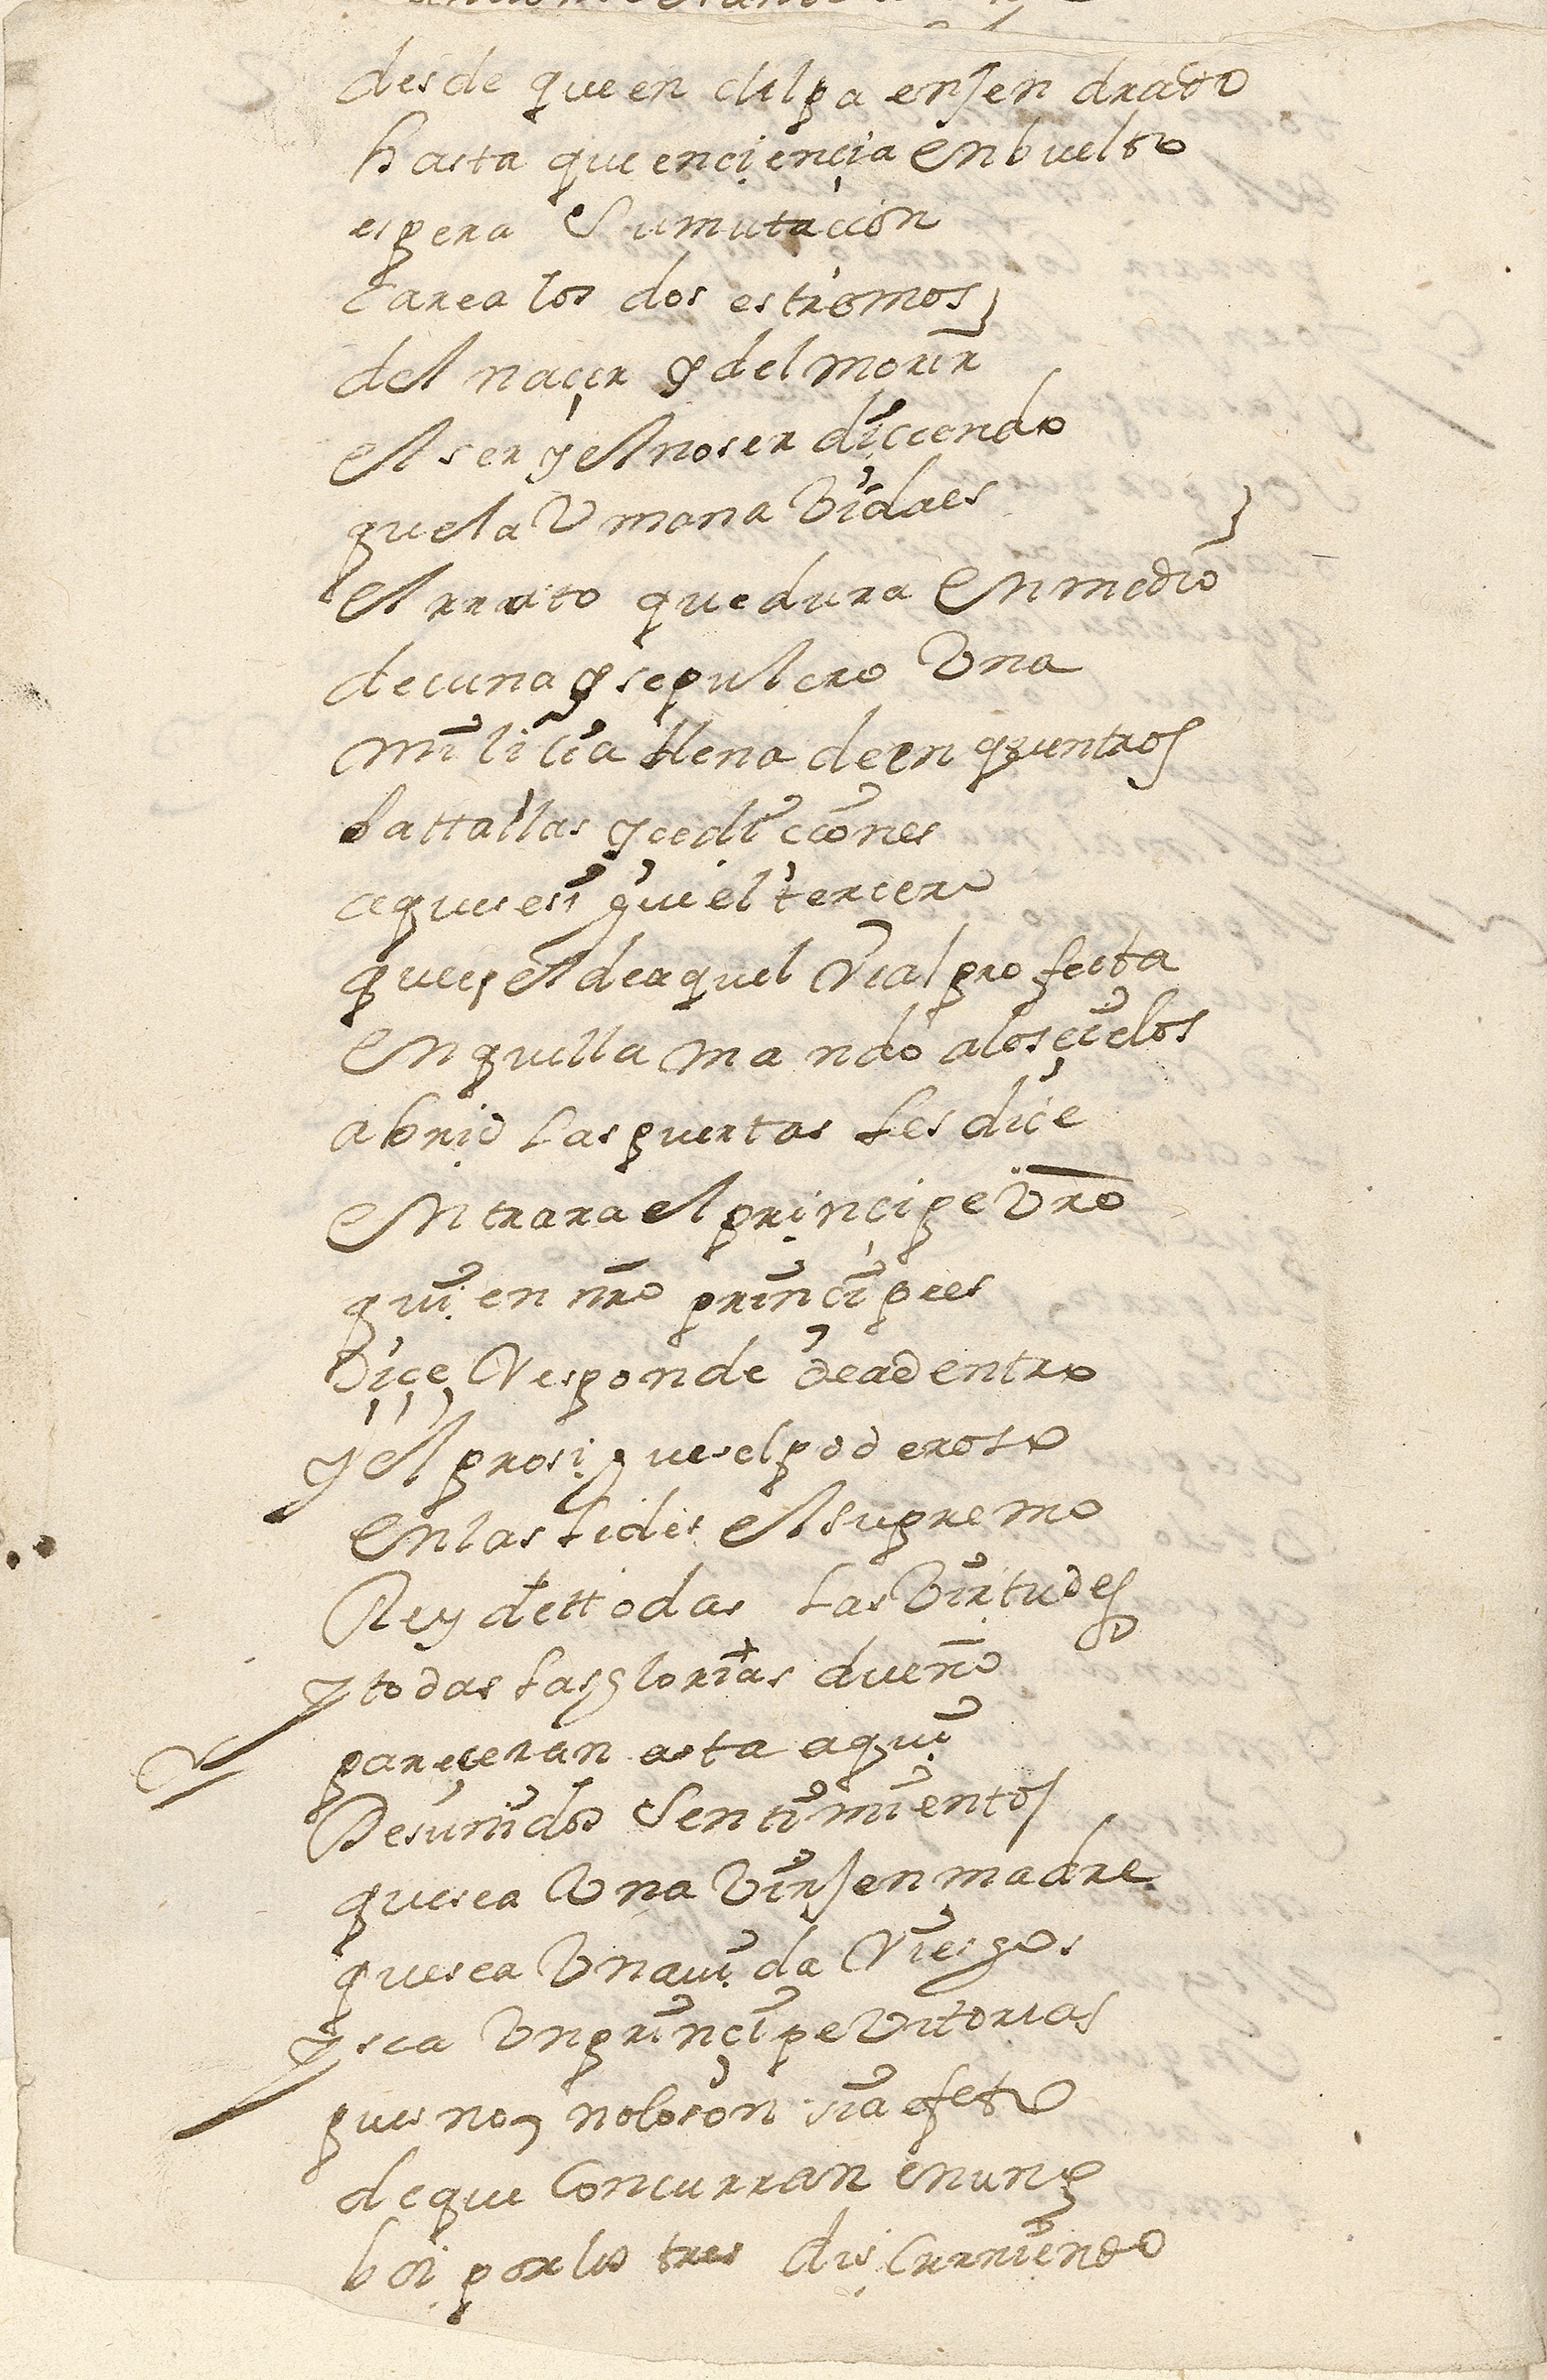 desde que en culpa enjendrado
hasta que en ciençia enbuelto
espera Su mutacion
tarea los dos estremos
del naçer y del morir
el ser y el no ser diciendo
que la Vmana Vida es
el rrato que dura en medio
de cuna y sepulcro Vna
miliçia llena de enquentros
battallas y cediciones
aques es que el tercero
que es el de aquel Real profecta
en qu llamando a los çielos
abrid las puertas les dice
entrara el prinçipe Vro
quien nro prinçipe es
Diçe Responde de adentro
y el prosigue el poderoso
en las lides el supremo
Rey de ttodas las Virtudes
y todas las glorias dueño
pareçeran asta aqui
Desunidos Sentimientos
que sea Vna Virjen madre
que sea Vna vida Riesgos
y sea Vn prinçipe Vitorias
pues no no lo son si a efeto
de que Concurran en un p
boi por los tres discurriendo